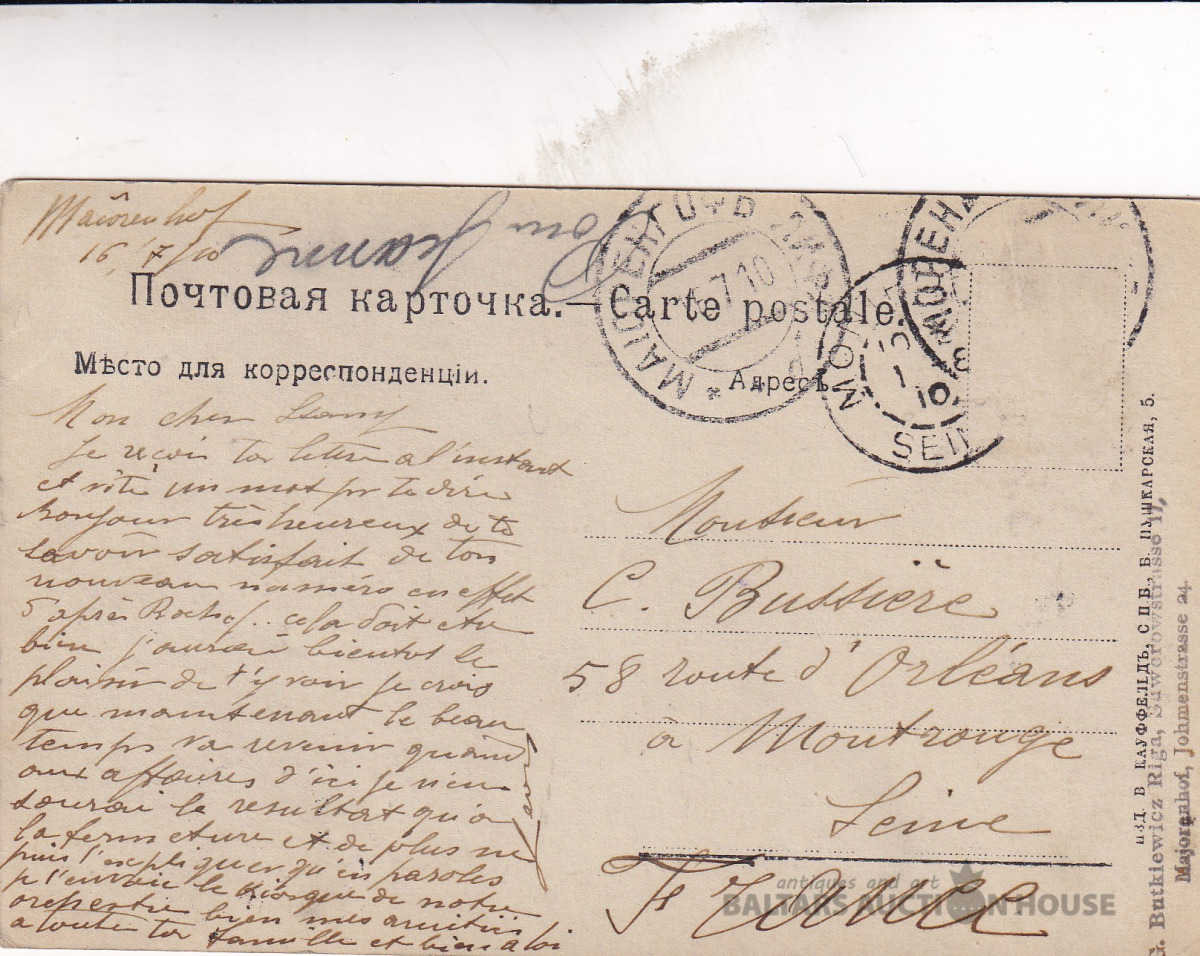 Maiorenhof
16/7/10
Почтовая карточка.—Carte postale.
Мѣсто для корреспонденціи.
Адресъ
МАІОРЕНГОФЪ ЛИФЛ
7 10
МАІОРЕНГ
MONT
SEIN
10
Mon cher
Je reçois ta lettre a l'instant
et vite un mot pr te dire
bonjour très heureux de te
savoir satisfait de ton
nouveau numéro en effet
après cela doit etre
bien j'aurai bientot le
plaisir de t'y voir je crois
que maintenant le beau
temps va revenir quand
aux affaires d'ici je n'en
saurai le resultat qu'a
la fermeture et de plus ne
puis t'expliquer qu'en paroles
je t'envoie le Kiosque de notre
orchestre bien mes amitiés
a toute ta famille et bien a toi
Monsieur
C. Bussière
58 route d'Orléans
à Montrouge
Seine
France
ИЗД. В КАУФФЕЛЬДЪ, С.П.Б., Б. ПУШКАРСКАЯ, 5.
G. Butkiewicz Riga, Suworowstrasse 17,
Majorenhof, Johmenstrasse 24
antiques and art
BALTARS AUCTION HOUSE